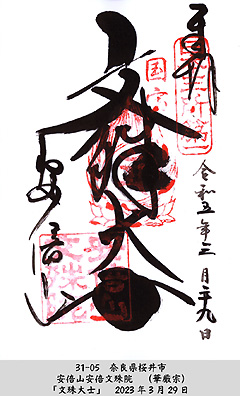 奉拝
国宝
文殊大士
令和五年三月二十九日
安倍山
31-05 奈良県桜井市
安倍山安倍文殊院 (華厳宗)
「文殊大士」 2023年3月29日